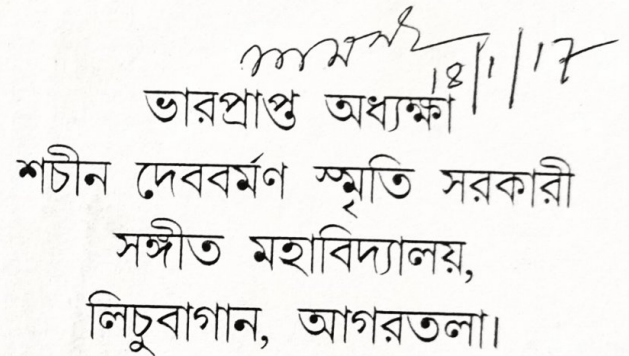 18/1/17
ভারপ্রাপ্ত অধ্যক্ষা
শচীন দেববর্মণ স্মৃতি সরকারী
সঙ্গীত মহাবিদ্যালয়,
লিচুবাগান, আগরতলা।